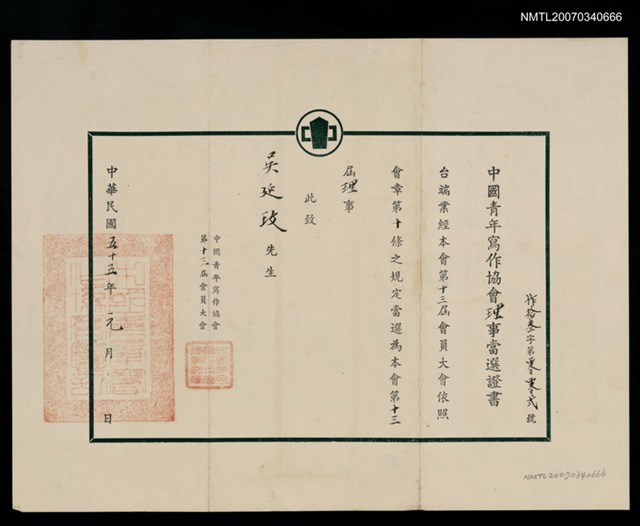 NMTL20070340666
中國青年寫作協會理事當選證書
作拾叁字第零零弍號
台端業經本會第十三屆會員大會依照
會章第十條之規定當選為本會第十三
屆理事
此致
吳延玫先生
中國青年寫作協會
第十三屆會員大會
中華民國五十五年元月 日
NMTL20070340666